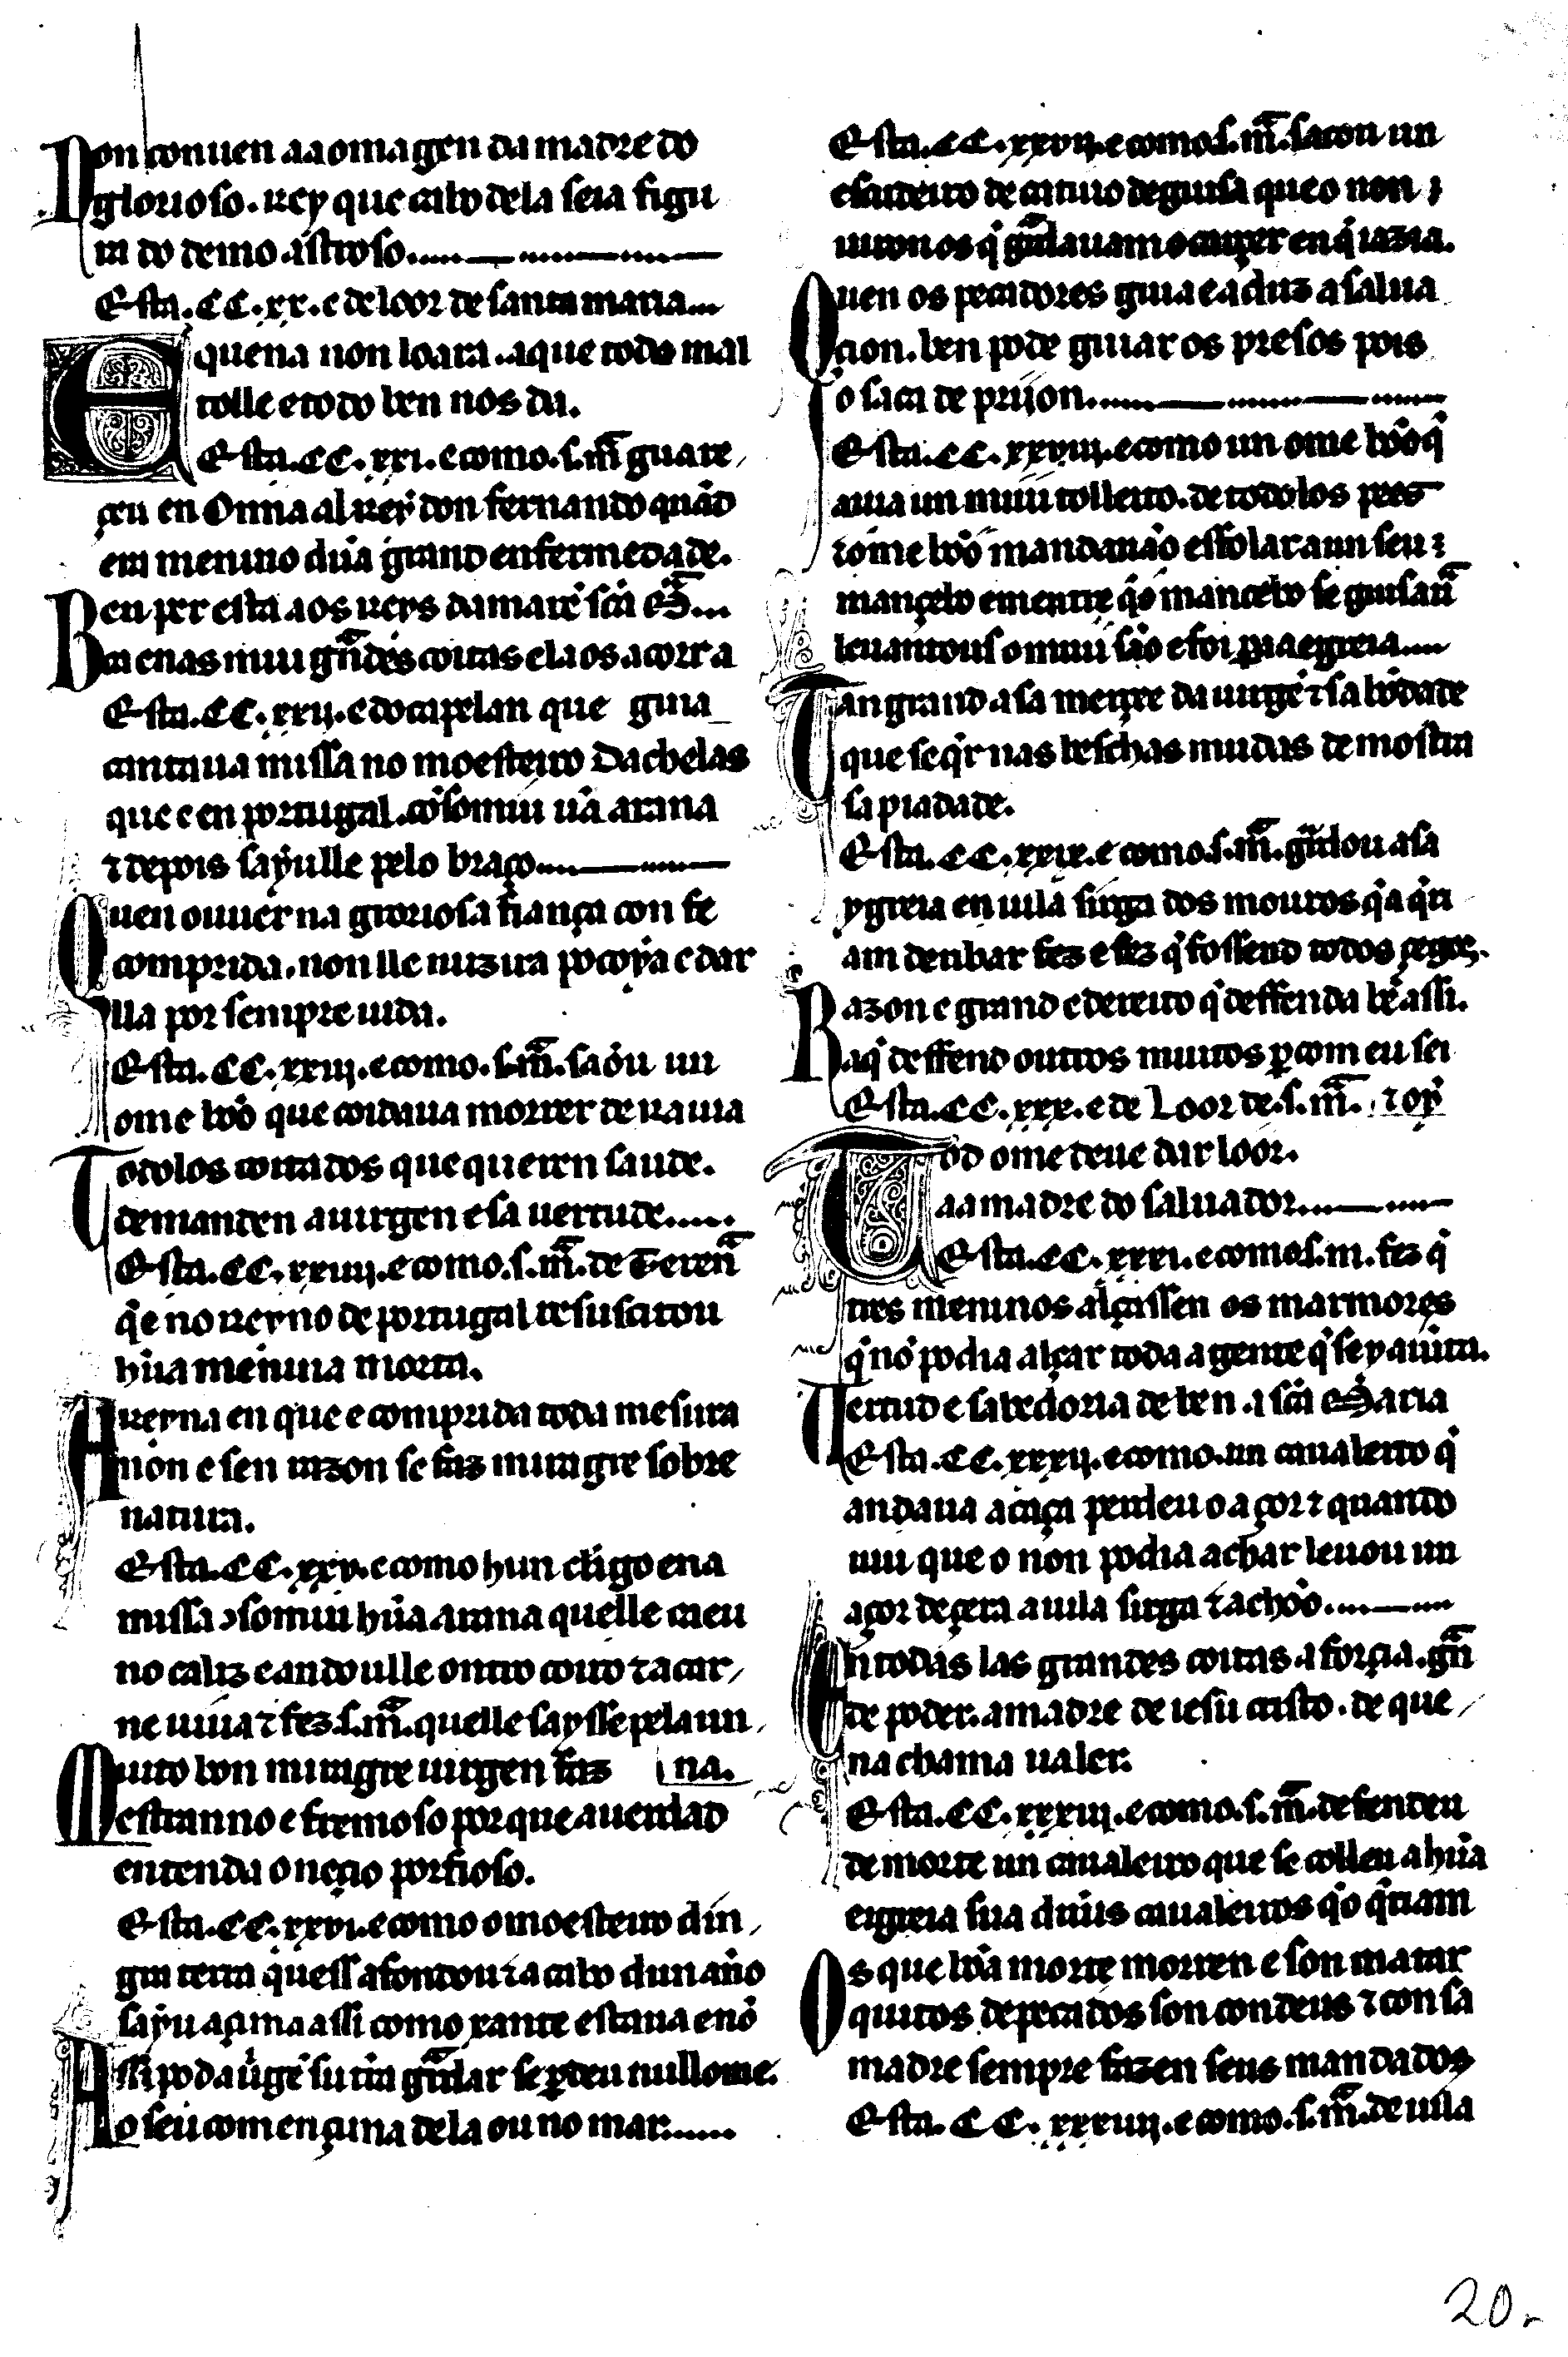 Non conuen aa omagen da madre do
glorioso. rey que cabo dela seia figu
ra do demo astroso.
Esta. CC. xx. e de loor de santa maria.
E quena non loara. a que todo mal
tolle e todo ben nos da.
Esta. CC. xxi. e como. s. mã guare,
çeu en Onna al rey don fernando quãd
era menino dũa grand enfermedade.
Ben per esta aos reys damarẽ scã M̃a...
ca enas mui grãdes coitas ela os acorr a
Esta. CC. xxij. e do capelan que guia
cantaua missa no moesteiro Dachelas
que e en portugal. cõsomiu ũa aranna
⁊ depois sayulle pelo braço.
Quen ouuer na groriosa fiança con fe
comprida. non lle nuzira poçoya e dar
lla por sempre uida.
Esta. CC. xxiij. e como. s. mã. sãou un
ome bõo que coidaua morrer de rauia
Todolos coitados que queren saude.
demanden a uirgen e sa uertude.....
Esta. CC. xxiiij. e como. s. mã. de Terenã
q̃ e no reyno de portugal resuscitou
hũa menina morta.
A reyna en que e comprida toda mesura
non e sen razon se faz miragre sobre
natura.
Esta. CC. xxv. e como hun cligo ena
missa ɔsomiu hũa aranna quelle caeu
no caliz e andoulle ontro coiro ⁊ a car,
ne uiua ⁊ fez. s. mã. quelle saysse pela un,
Muito bon miragre uirgen faz na.
estranno e fremoso porque a uerdad
entenda o neçio porfioso.
Esta. CC. xxvi. e como o moesteiro din,
gra terra q̃uess afondou ⁊ a cabo dun año
sayu açima assi como xante estaua enõ
Assi poda ũgẽ su tr̃a gũdar se p̃deu null ome.
o seu començu na dela ou no mar......
Esta. CC. xxvij. e como. s. mã. sacou un
escudeiro de catiuo de guisa que o non ;
uiron os q̃ gũdauam o carçer en q̃ iazia.
Quen os pecadores guia e aduz a salua
çion. ben pode guiar os presos pois
o saca de prijon.
Esta. CC. xxviij. e como un ome bõo q̃
auia un muu tolleito. de todolos pees
⁊ ome bõo mandauão esfolar a un seu ⁊
mançebo e mentre q̃o mancebo se guisaũ
leuantous o muu são e foi pera egreia....
Tan grand a sa merçee da uirgẽ ⁊ sa bõdade
que se q̃r nas beschas mudas demostra
sa piadade.
Esta. CC. xxix. e como. s. mã. gũdou a sa
ygreia en uila sirga dos mouros q̃a q̃ri
am derribar fez e fez q̃ fossend todos çegos.
Razon e grand e dereito q̃ deffenda bẽ assi.
a q̃ deffend outros muitos p̃com eu sei
Esta. CC. xxx. e de Loor de. s. mã.
Tod ome deue dar loor.
aa madre do saluador.
Esta. CC. xxxi. e como. s. m. fez q̃
tres meninos alçassen os marmores
q̃ nõ podia alçar toda a gente q̃ se y aiũta.
Uertud e sabedoria de ben. a scã Maria
Esta. CC. xxxij. e como. un caualeiro q̃
andaua a caça perdeu o açor ⁊ quando
uiu que o non podia achar leuou un
açor de çera a uila sirga ⁊ achoo.
En todas las grandes coitas. a força. grã
de poder. a madre de iesu cristo. de que,
na chama ualer.
Esta. CC. xxxiij. e como. s. mã. defendeu
de morte un caualeiro que se colleu a hũa
eigreia sua dũus caualeiros q̃o q̃riam
Os que bõa morte morren e son matar
quitos de pecados son con deus ⁊ con sa
madre sempre fazen seus mandados
Esta. CC. xxxiiij. e como. s. mã. de uila
20r